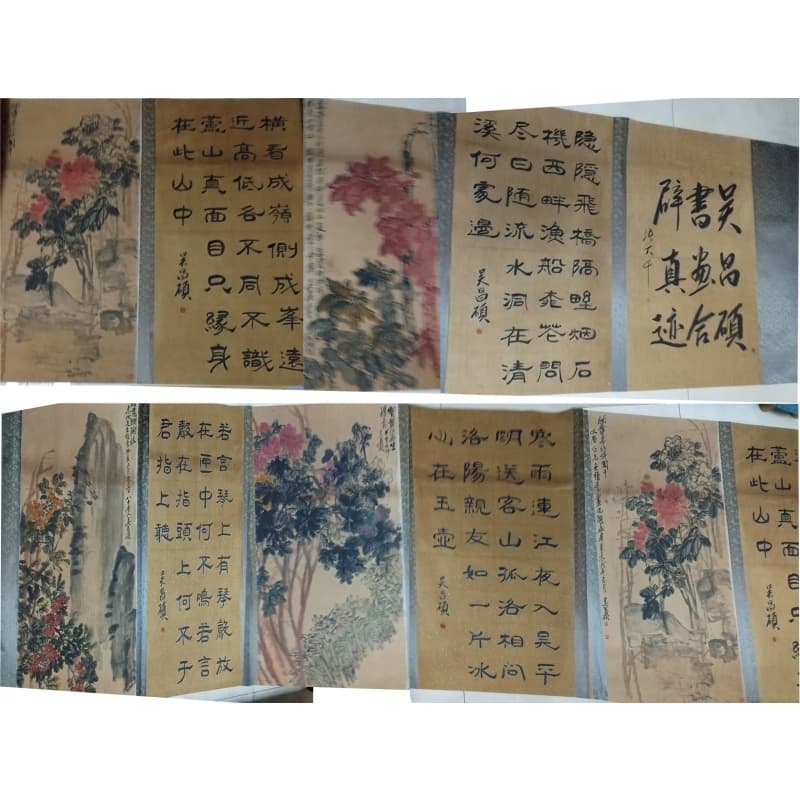 吴昌碩
書画合
辟真迹
张大千
隐隐飛橋隔野烟石
機西畔渔船桃花問
尽日随流水洞在清
溪何家邊
吴昌碩
横看成嶺側成峯遠
近高低各不同不識
廬山真面目只緣身
在此山中
吴昌碩
廬山真面目只
在此山中
吴昌碩
寒雨連江夜入吴平
明送客山孤洛相问
洛陽親友如一片冰
心在玉壺
吴昌碩
若言琴上有琴聲放
在匣中何不鳴若言
聲在指頭上何不于
君指上聽
吴昌碩